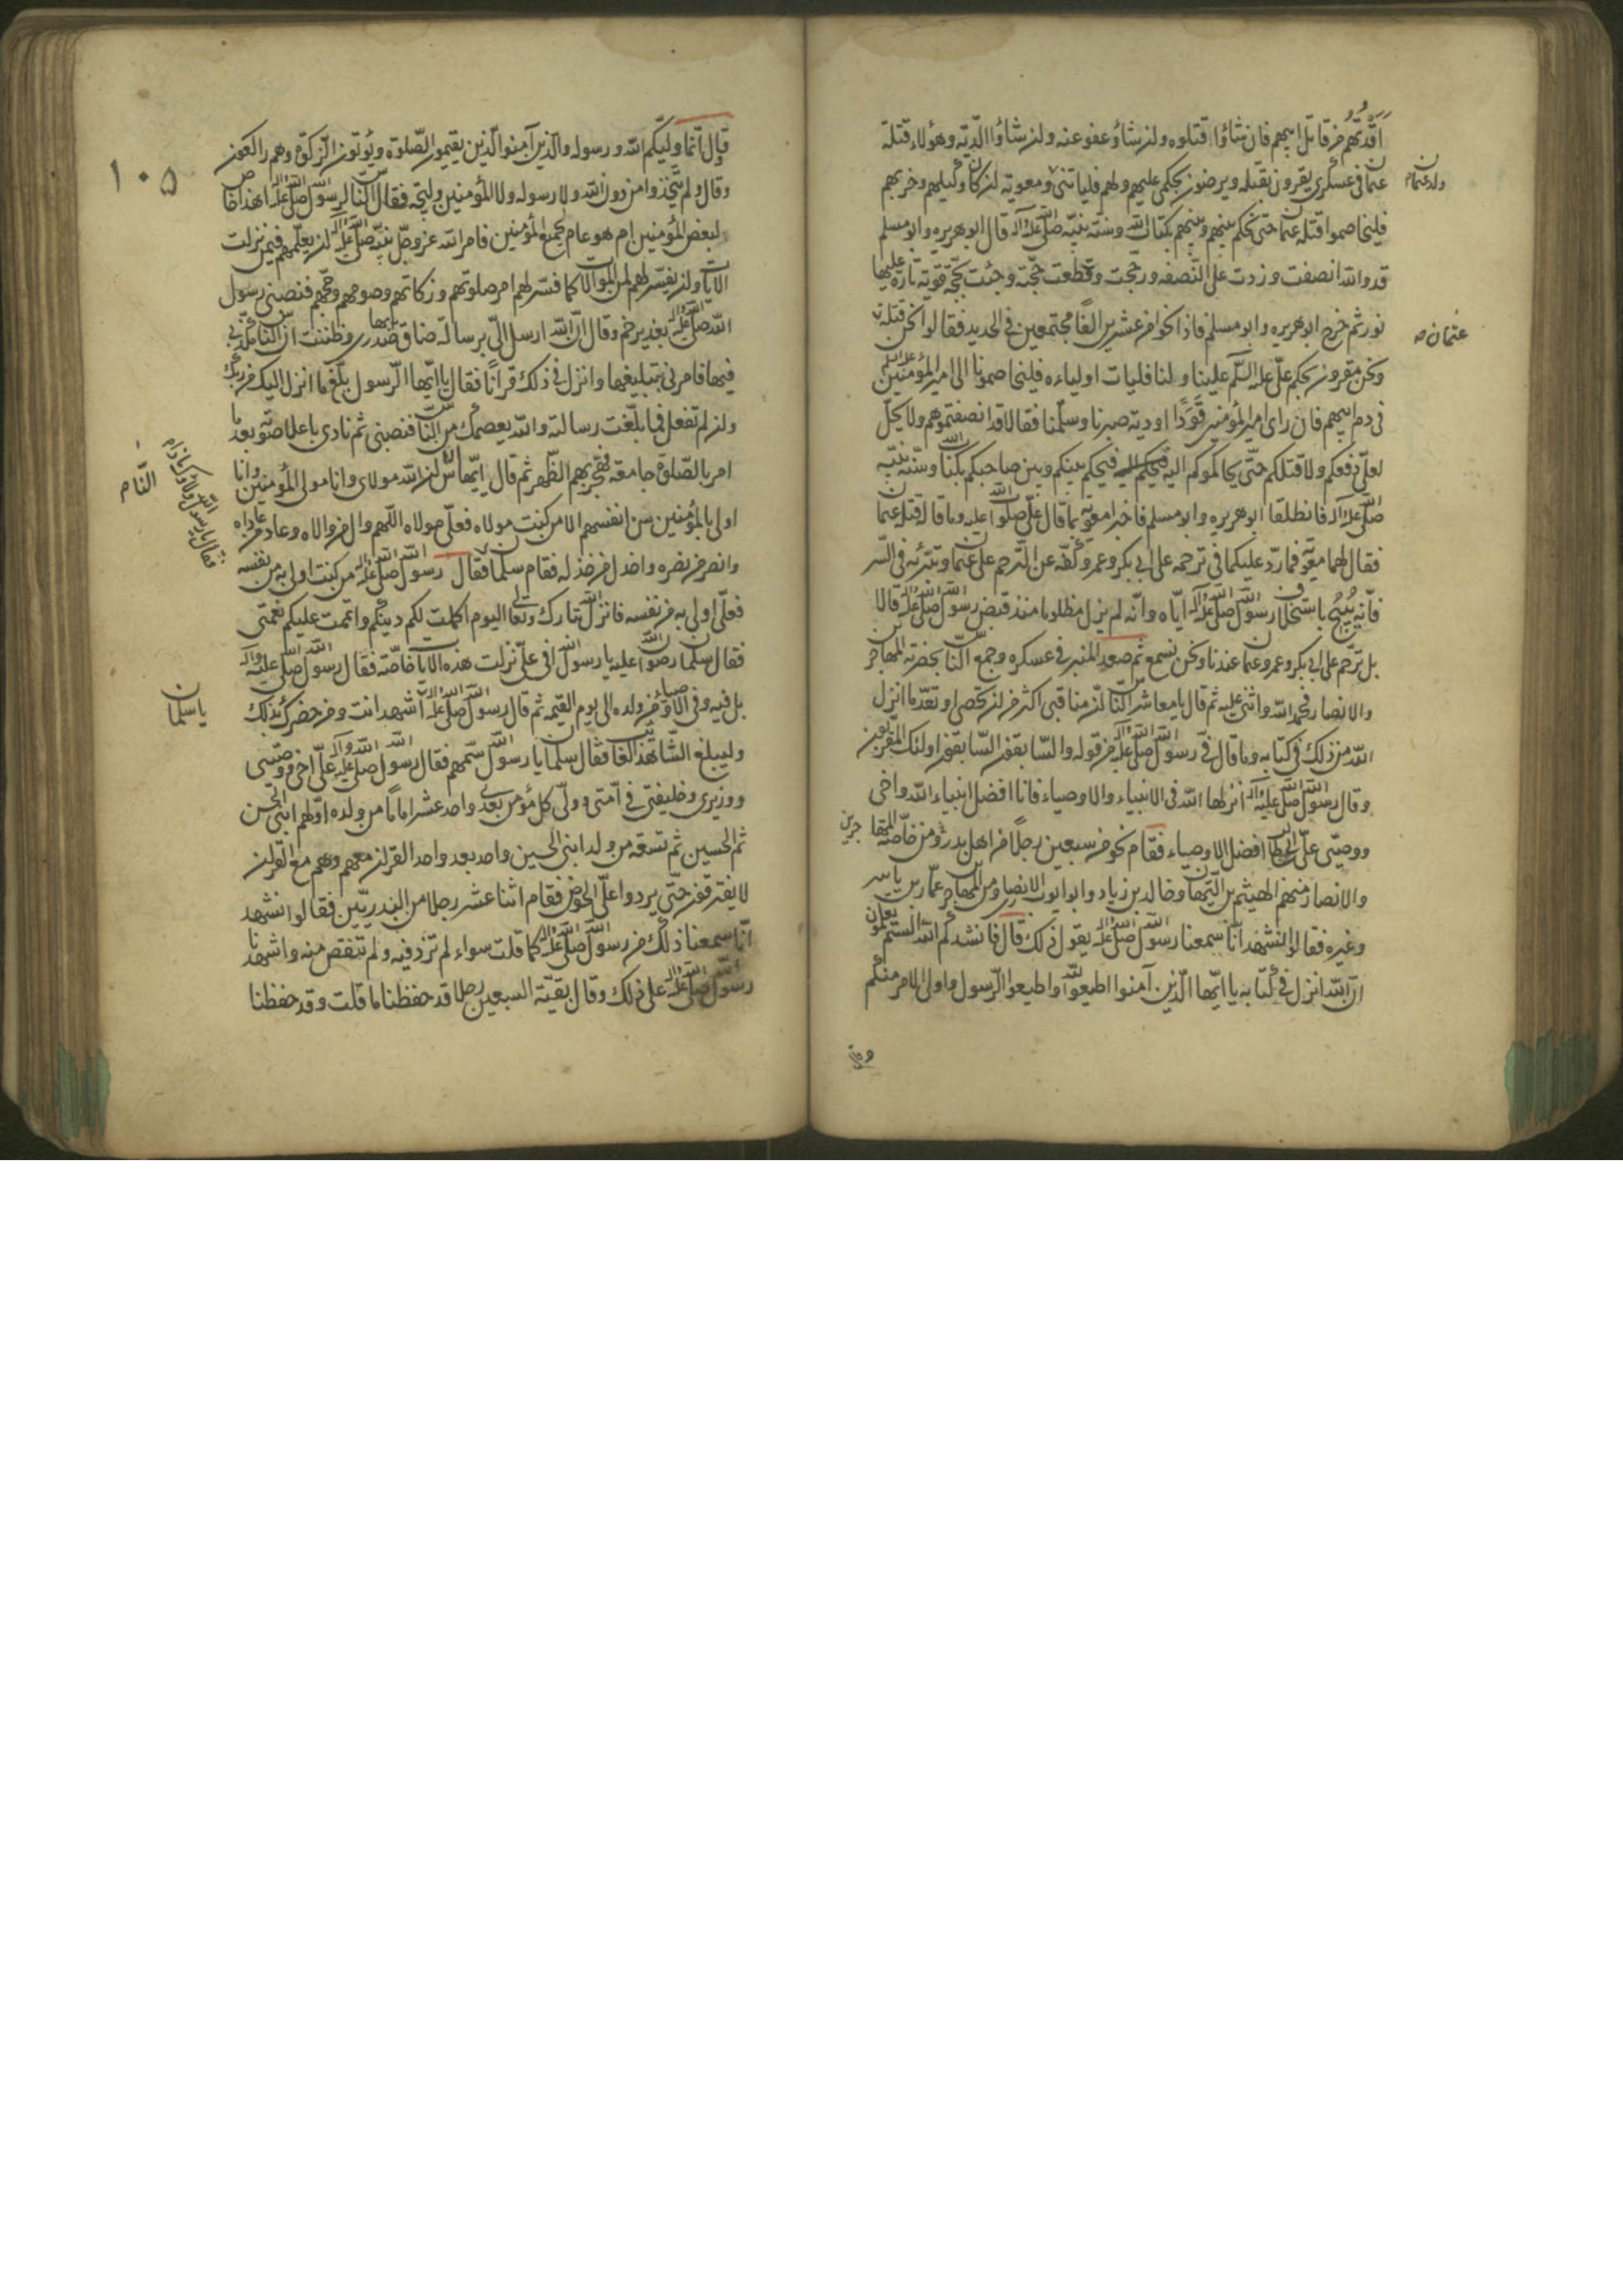 اقدتهم من قاتل ابيهم فان شاؤا قتلوه وان شاؤ عفو عنه وان شاؤا الدية وهؤلاء قتلة
عثمان في عسكري يقرون بقتله ويرضون بحكمي عليهم ولهم فلياتني ومعوية ان كان وكيلهم وخربهم
ولد عثمان
فليخاصموا قتلة عثمان حتى احكم بينهم وبينهم بكتاب الله وسنة نبيه صلى الله عليه وآله قال ابو هريره وابو مسلم
قد والله انصفت وزدت على النصفه ورجحت وقطعت حجته وجئت بحجة قوية تارة عليها
نور ثم خرج ابو هريره وابو مسلم فاذا نحو من عشرين الفا مجتمعين في الحديد فقالوا نحن قتلة
عثمان
ونحن مقرون بحكم علي عليه السلم علينا ولنا فليات اولياءه فليخاصمونا الى امير المؤمنين عليه السلم
في دم ابيهم فان راى امير المؤمنين قودا او دية صبرنا وسلمنا فقالا قد انصفتموهم ولا يحل
لعلي دفعكم ولا قتلكم حتى يحاكموكم اليه فيحكم بينكم وبين صاحبكم بكتاب الله وسنة نبيه
صلى الله عليه وآله فانطلقا ابو هريره وابو مسلم فاخبرا معوية بما قال علي صلوات الله عليه وما قال قتلة عثمان
فقال لهما معوية فما رد عليكما في ترحمه على ابي بكر وعمر وكفه عن الترحم على عثمان وتبرئه في السر
فانه يبيح باستخلاف رسول الله صلى الله عليه وآله اياه وانه لم يزل مظلوما منذ قبض رسول الله صلى الله عليه وآله قالا
بل ترحم على ابي بكر وعمر وعثمان عندنا ونحن نسمع ثم صعد المنبر في عسكره وجمع الناس بحضرته المهاجرين
والانصار فحمد الله واثنى عليه ثم قال يا معاشر الناس ان مناقبي اكثر من ان تحصى او تعد ما انزل
الله من ذلك في كتابه وما قال في رسول الله صلى الله عليه وآله من قوله والسابقون السابقون اولئك المقربون
وقال رسول الله صلى الله عليه وآله انزلها الله في الانبياء والاوصياء فانا افضل انبياء الله واخي
ووصيي علي بن ابي طالب افضل الاوصياء فقام نحو من سبعين رجلا من اهل بدر ومن خاصة المهاجرين
جرين
والانصار منهم الهيثم بن التيهان وخالد بن زياد وابو ايوب الانصاري ومن المهاجرين عمار بن ياسر
وغيره فقالوا نشهد انا سمعنا رسول الله صلى الله عليه وآله يقول ذلك قال فانشدكم الله الستم تعلمون
ان الله انزل في كتابه يا ايها الذين آمنوا اطيعوا الله واطيعوا الرسول واولى الامر منكم
وقال
١٠٥
قال انما وليكم الله ورسوله والذين آمنوا الذين يقيمون الصلوة ويؤتون الزكوة وهم راكعون
وقال ولم يتخذوا من دون الله ولا رسوله ولا المؤمنين وليجة فقال الناس لرسول الله صلى الله عليه وآله اهذا خاص
لبعض المؤمنين ام هو عام لجميع المؤمنين فامر الله عز وجل نبيه صلى الله عليه وآله ان يعلمهم فيمن نزلت
الايات وان يفسر لهم لمن الولاية كما فسر لهم امر صلوتهم وزكاتهم وصومهم وحجهم فنصبني رسول
الله صلى الله عليه وآله بغدير خم وقال ان الله ارسل الي برسالة ضاق بها صدري وظننت ان الناس مكذبي
فيها فامرني بتبليغها وانزل في ذلك قرانا فقال يا ايها الرسول بلغ ما انزل اليك من ربك
وان لم تفعل فما بلغت رسالته والله يعصمك من الناس فنصبني ثم نادى باعلا صوته بعد ما
امر بالصلوة جامعة فهجر بهم الظهر ثم قال ايها الناس ان الله مولاي وانا مولى المؤمنين وانا
اولى بالمؤمنين من انفسهم الا من كنت مولاه فعلي مولاه اللهم وال من والاه وعاد من عاداه
وانصر من نصره واخذل من خذله فقام سلمان فقال رسول الله صلى الله عليه وآله من كنت اولى به من نفسه
فقال يا رسول الله ولاؤه كماذا
النام
فعلي اولى به من نفسه فانزل الله تبارك وتعالى اليوم اكملت لكم دينكم واتممت عليكم نعمتي
فقال سلمان رضوان الله عليه يا رسول الله افي علي نزلت هذه الايات خاصة فقال رسول الله صلى الله عليه وآله
بل فيه وفي الاوصياء من ولده الى يوم القيمه ثم قال رسول الله صلى الله عليه وآله اشهد انت ومن حضرك بذلك
يا سلمان
وليبلغ الشاهد الغائب فقال سلمان يا رسول الله سمهم فقال رسول الله صلى الله عليه وآله علي اخي ووصيي
ووزيري وخليفتي في امتي وولي كل مؤمن بعدي واحد عشر اماما من ولده اولهم ابني الحسن
ثم الحسين ثم تسعة من ولد ابني الحسين واحد بعد واحد القران معهم وهم مع القران
لا يفترقون حتى يردوا على الحوض فقام اثنا عشر رجلا من البدريين فقالوا نشهد
انا سمعنا ذلك من رسول الله صلى الله عليه وآله كما قلت سواء لم تزد فيه ولم تنقص منه واشهدنا
رسول الله صلى الله عليه وآله على ذلك وقال بقية السبعين رجلا قد حفظنا ما قلت وقد حفظنا